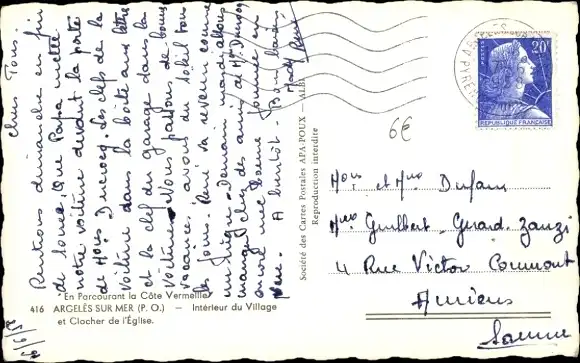 Chers Tous.
Rentrons dimanche en fin
de soirée, que Papa mette
notre voiture devant la porte
de Mons Ducrocq. Les clefs de la
voiture dans la boîte aux lettres
et la clef du garage dans la
voiture. Nous passons de bonnes
vacances, avons du soleil tous
les jours. René va revenir comme
un nègre. Demain mardi allons
manger chez des amis de Mr Ducrocq
encore une bonne journée en
A bientôt. Bons baisers
Mady René
"En Parcourant la Côte Vermeille"
416 ARGELÈS SUR MER (P. O.) — Intérieur du Village
et Clocher de l'Église.
Société des Cartes Postales APA-POUX — ALBI
Reproduction interdite
POSTES
20F
REPUBLIQUE FRANÇAISE
6€
Mons et Mme Dufour
4 Rue Victor
Amiens
Somme